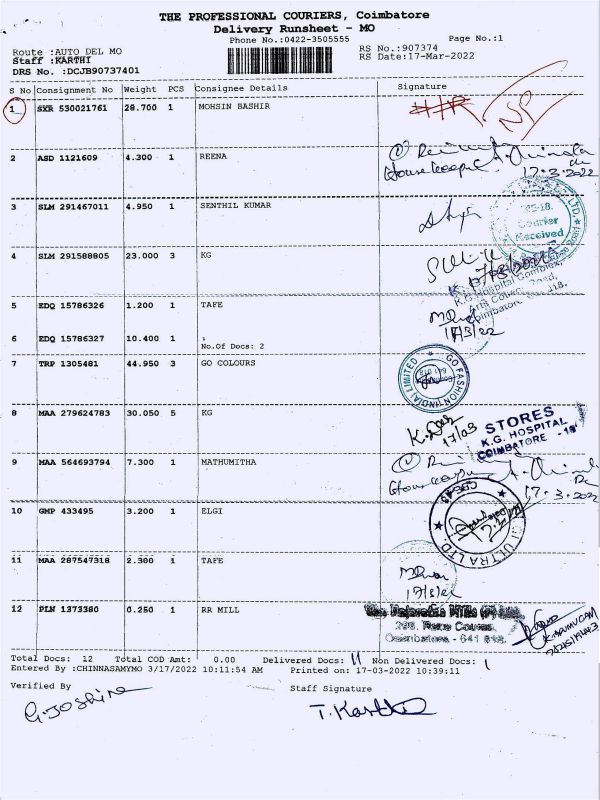 THE PROFESSIONAL COURIERS, Coimbatore
Delivery Runsheet - MO
Phone No.:0422-3505555
Page No.:1
Route :AUTO DEL MO
Staff :KARTHI
DRS No. :DCJB90737401
RS No.:907374
RS Date:17-Mar-2022
S No Consignment No Weight PCS Consignee Details Signature
1 SXR 530021761 28.700 1 MOHSIN BASHIR
2 ASD 1121609 4.300 1 REENA
17-3-2022
3 SLM 291467011 4.950 1 SENTHIL KUMAR
Courier
Received
4 SLM 291588805 23.000 3 KG
K.G. Hospital Complex,
Arts College Road,
Coimbatore
5 EDQ 15786326 1.200 1 TAFE
17/3/22
6 EDQ 15786327 10.400 1 .
No.Of Docs: 2
7 TRP 1305481 44.950 3 GO COLOURS
GO FASHION (INDIA) LIMITED
8 MAA 279624783 30.050 5 KG
17/03
STORES
K.G. HOSPITAL
COIMBATORE - 18
9 MAA 564693794 7.300 1 MATHUMITHA
17-3-2022
10 GMP 433495 3.200 1 ELGI
ULTRA LTD.
11 MAA 287547318 2.300 1 TAFE
12 PLN 1373380 0.250 1 RR MILL
Race Course
Coimbatore - 641 018.
Total Docs: 12 Total COD Amt: 0.00 Delivered Docs: 11 Non Delivered Docs: 1
Entered By :CHINNASAMYMO 3/17/2022 10:11:54 AM Printed on: 17-03-2022 10:39:11
Verified By Staff Signature
G. Joshine T. Karthi